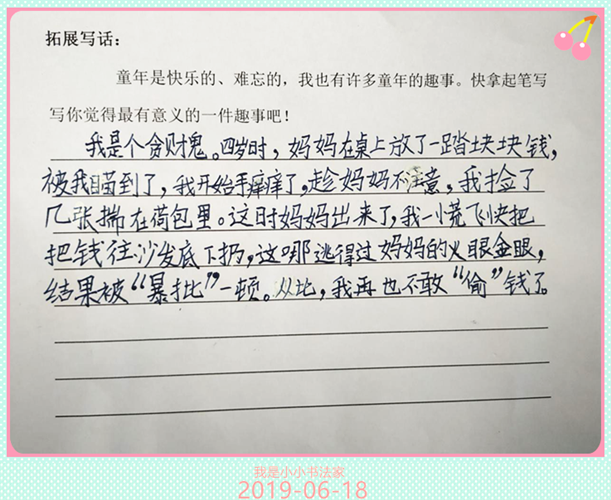 拓展写话:
童年是快乐的、难忘的,我也有许多童年的趣事。快拿起笔写
写你觉得最有意义的一件趣事吧!
我是个贪财鬼。四岁时,妈妈在桌上放了一踏块块钱,
被我瞄到了,我开始手痒痒了,趁妈妈不注意,我捡了
几张揣在荷包里。这时妈妈出来了,我一慌飞快把
把钱往沙发底下扔,这哪逃得过妈妈的火眼金眼,
结果被“暴批”一顿。从此,我再也不敢“偷”钱了。
我是小小书法家
2019-06-18